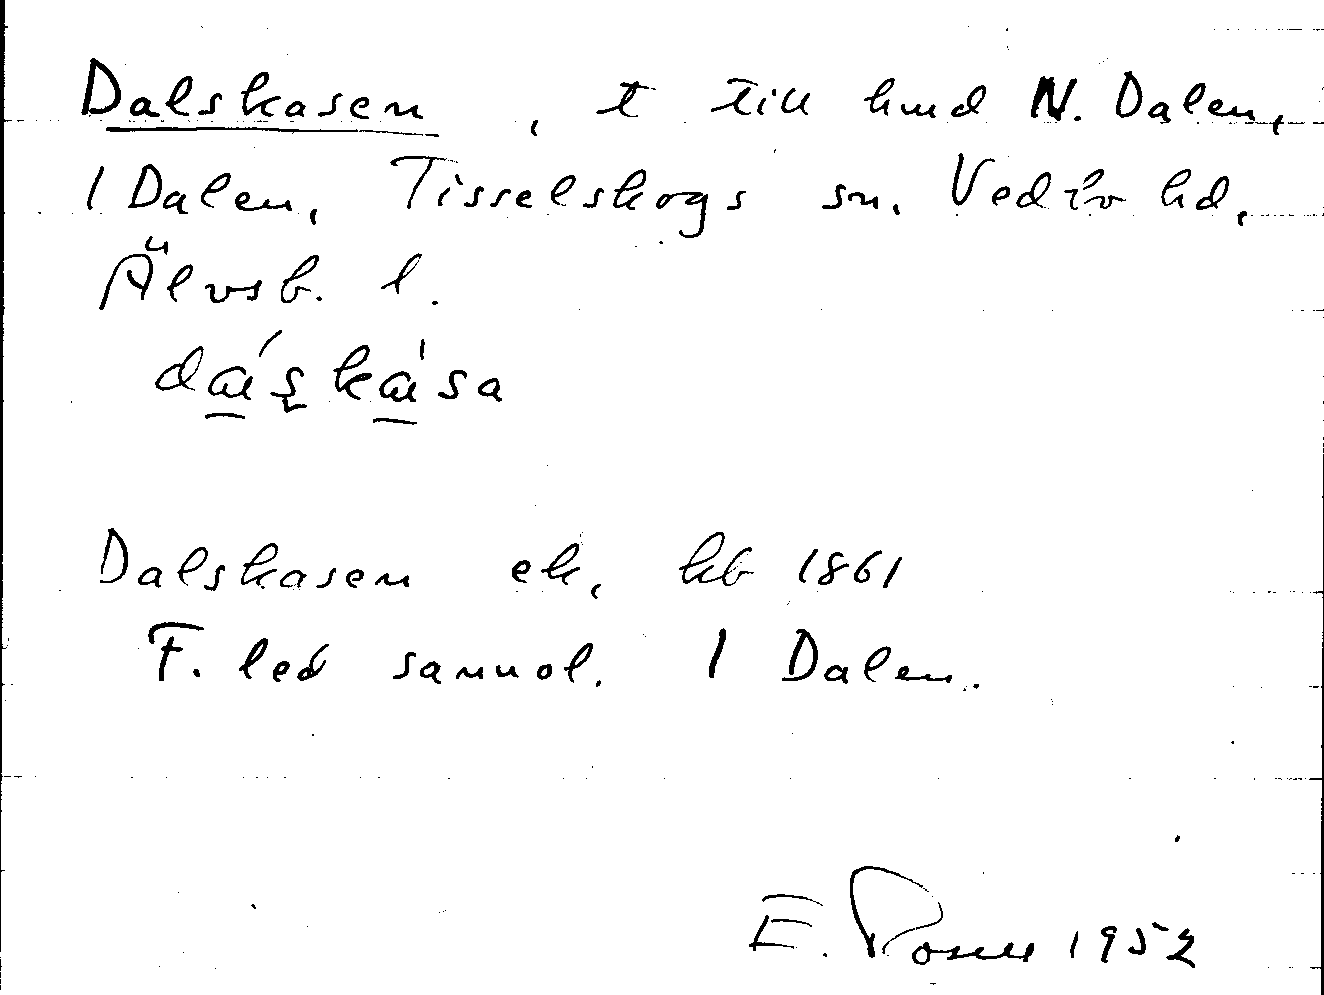 Dalskasen, t till hmd N. Dalen,
1 Dalen, Tisselskogs sn. Vedbo hd,
Älvsb. l.
Dalskasen ek, kb 1861
F. led sannol. 1 Dalen.
E. Rosell 1952